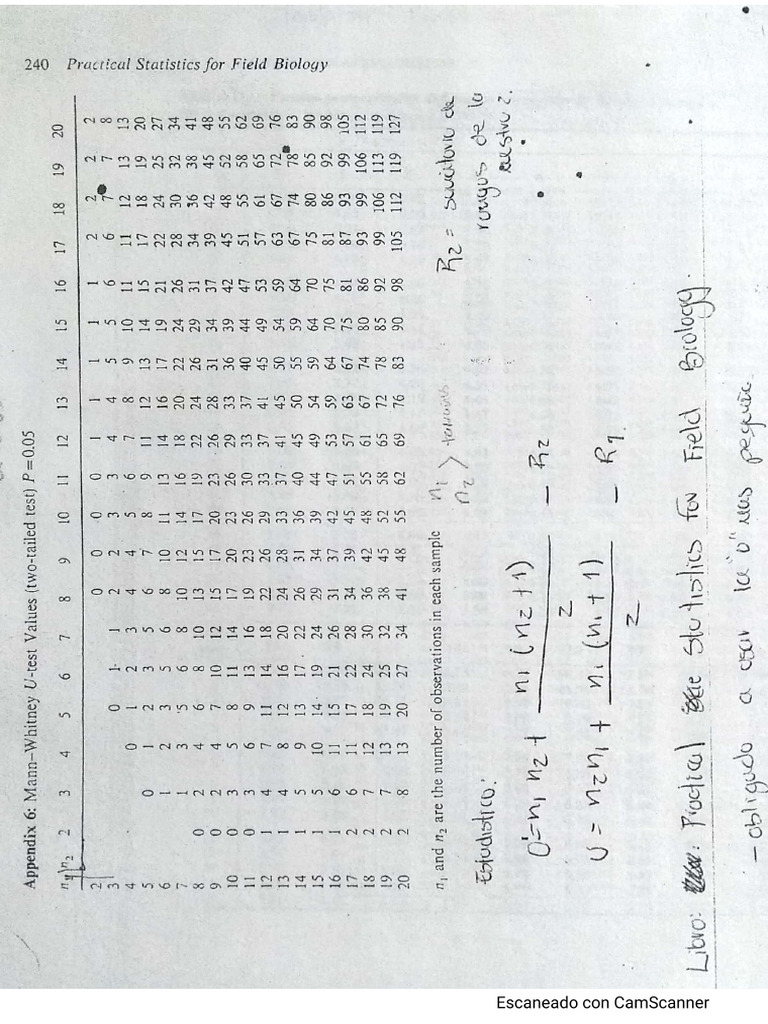 240 Practical Statistics for Field Biology
Appendix 6: Mann–Whitney U-test Values (two-tailed test) P=0.05
n₁\n₂ 2 3 4 5 6 7 8 9 10 11 12 13 14 15 16 17 18 19 20
2 0 0 0 0 1 1 1 1 1 2 2 2 2
3 0 1 1 2 2 3 3 4 4 5 5 6 6 7 7 8
4 0 1 2 3 4 4 5 6 7 8 9 10 11 11 12 13 13
5 0 1 2 3 5 6 7 8 9 11 12 13 14 15 17 18 19 20
6 1 2 3 5 6 8 10 11 13 14 16 17 19 21 22 24 25 27
7 1 3 5 6 8 10 12 14 16 18 20 22 24 26 28 30 32 34
8 0 2 4 6 8 10 13 15 17 19 22 24 26 29 31 34 36 38 41
9 0 2 4 7 10 12 15 17 20 23 26 28 31 34 37 39 42 45 48
10 0 3 5 8 11 14 17 20 23 26 29 33 36 39 42 45 48 52 55
11 0 3 6 9 13 16 19 23 26 30 33 37 40 44 47 51 55 58 62
12 1 4 7 11 14 18 22 26 29 33 37 41 45 49 53 57 61 65 69
13 1 4 8 12 16 20 24 28 33 37 41 45 50 54 59 63 67 72 76
14 1 5 9 13 17 22 26 31 36 40 45 50 55 59 64 67 74 78 83
15 1 5 10 14 19 24 29 34 39 44 49 54 59 64 70 75 80 85 90
16 1 6 11 15 21 26 31 37 42 47 53 59 64 70 75 81 86 92 98
17 2 6 11 17 22 28 34 39 45 51 57 63 67 75 81 87 93 99 105
18 2 7 12 18 24 30 36 42 48 55 61 67 74 80 86 93 99 106 112
19 2 7 13 19 25 32 38 45 52 58 65 72 78 85 92 99 106 113 119
20 2 8 13 20 27 34 41 48 55 62 69 76 83 90 98 105 112 119 127
n₁ and n₂ are the number of observations in each sample
n₁
n₂ > tamaños
R₂ = sumatoria de
rangos de la
muestra 2.
Estadístico:
U' = n₁ n₂ + n₁(n₂+1)/2 − R₂
U = n₂n₁ + n₁(n₁+1)/2 − R₁
Libro: Practical Statistics For Field Biology.
- obligado a usar la "U" mas pequeña.
Escaneado con CamScanner